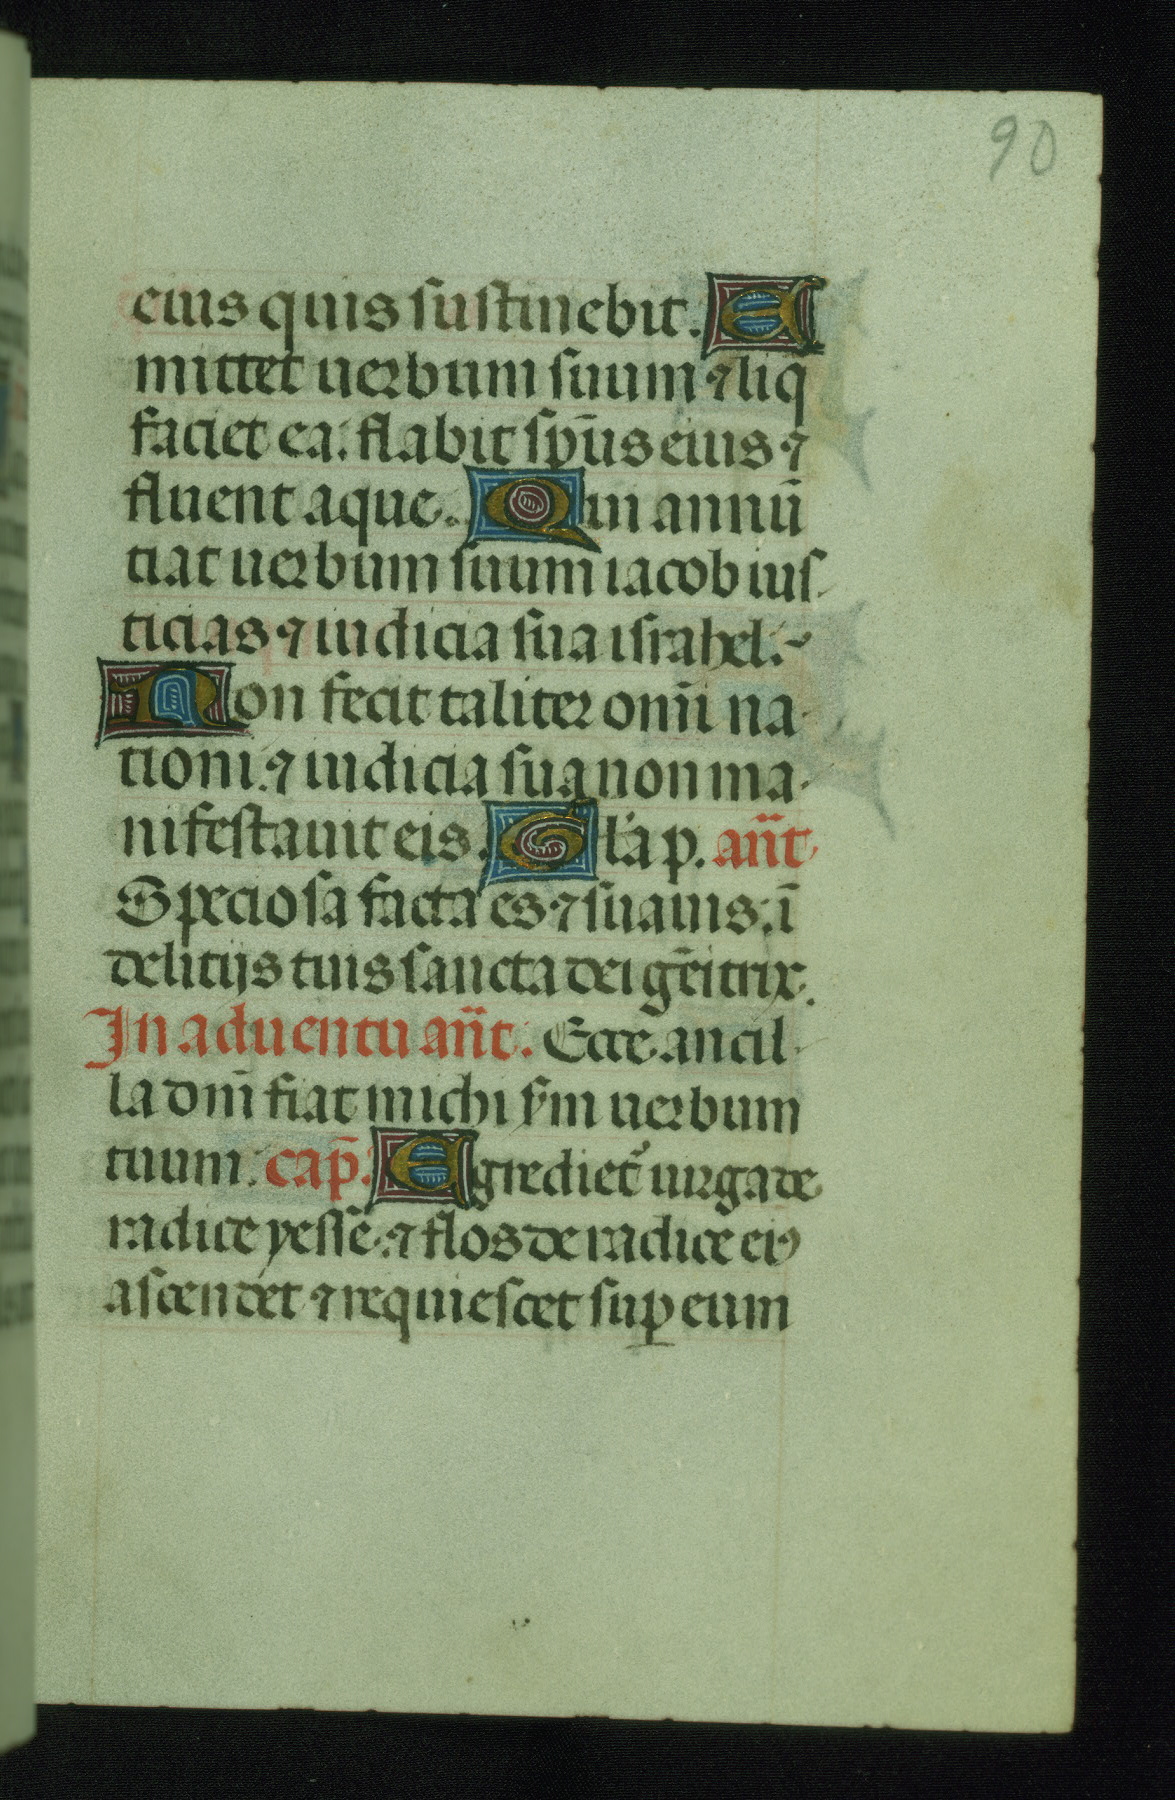 90
eius quis sustinebit. E
mittet uerbum suum ⁊ liq
faciet ea: flabit sp̄us eius ⁊
fluent aque. Qui annū
tiat uerbum suum iacob ius
ticias ⁊ iudicia sua israhel.
Non fecit taliter om̄i na
tioni: ⁊ iudicia sua non ma
nifestauit eis. Gl'a p. an̄t
Speciosa facta es ⁊ suauis: ī
delitijs tuis sancta dei gēitrix.
In aduentu an̄t. Ecce ancil
la dn̄i fiat michi s'm uerbum
tuum. cap̄. Egrediet᷑ uirga de
radice yesse: ⁊ flos de radice eiꝰ
ascendet ⁊ requiescet suꝑ eum